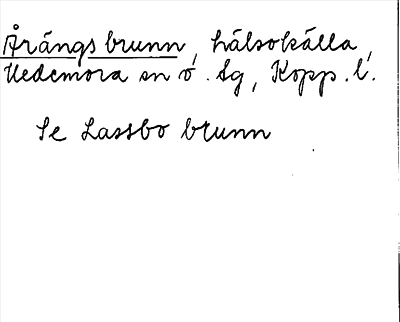 Årängs brunn, hälsokälla,
Hedemora sn o. Sg, Kopp. l.
Se Lassbo brunn